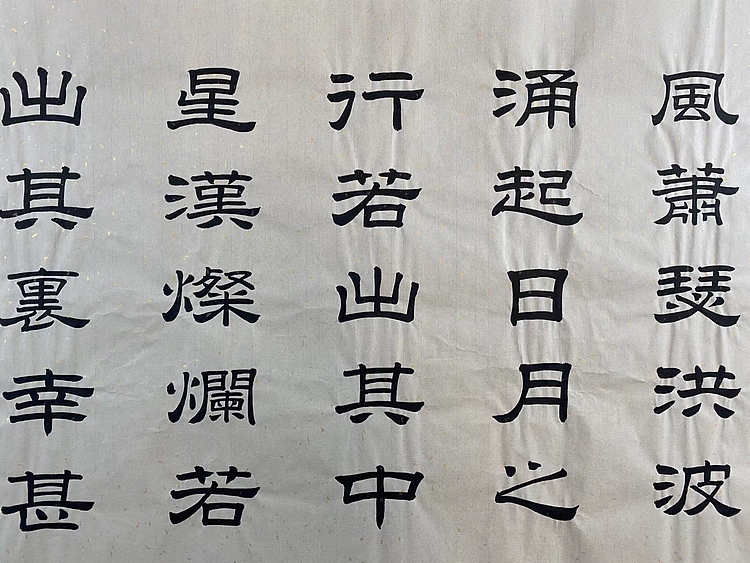 風蕭瑟洪波
涌起日月之
行若出其中
星漢燦爛若
出其裏幸甚